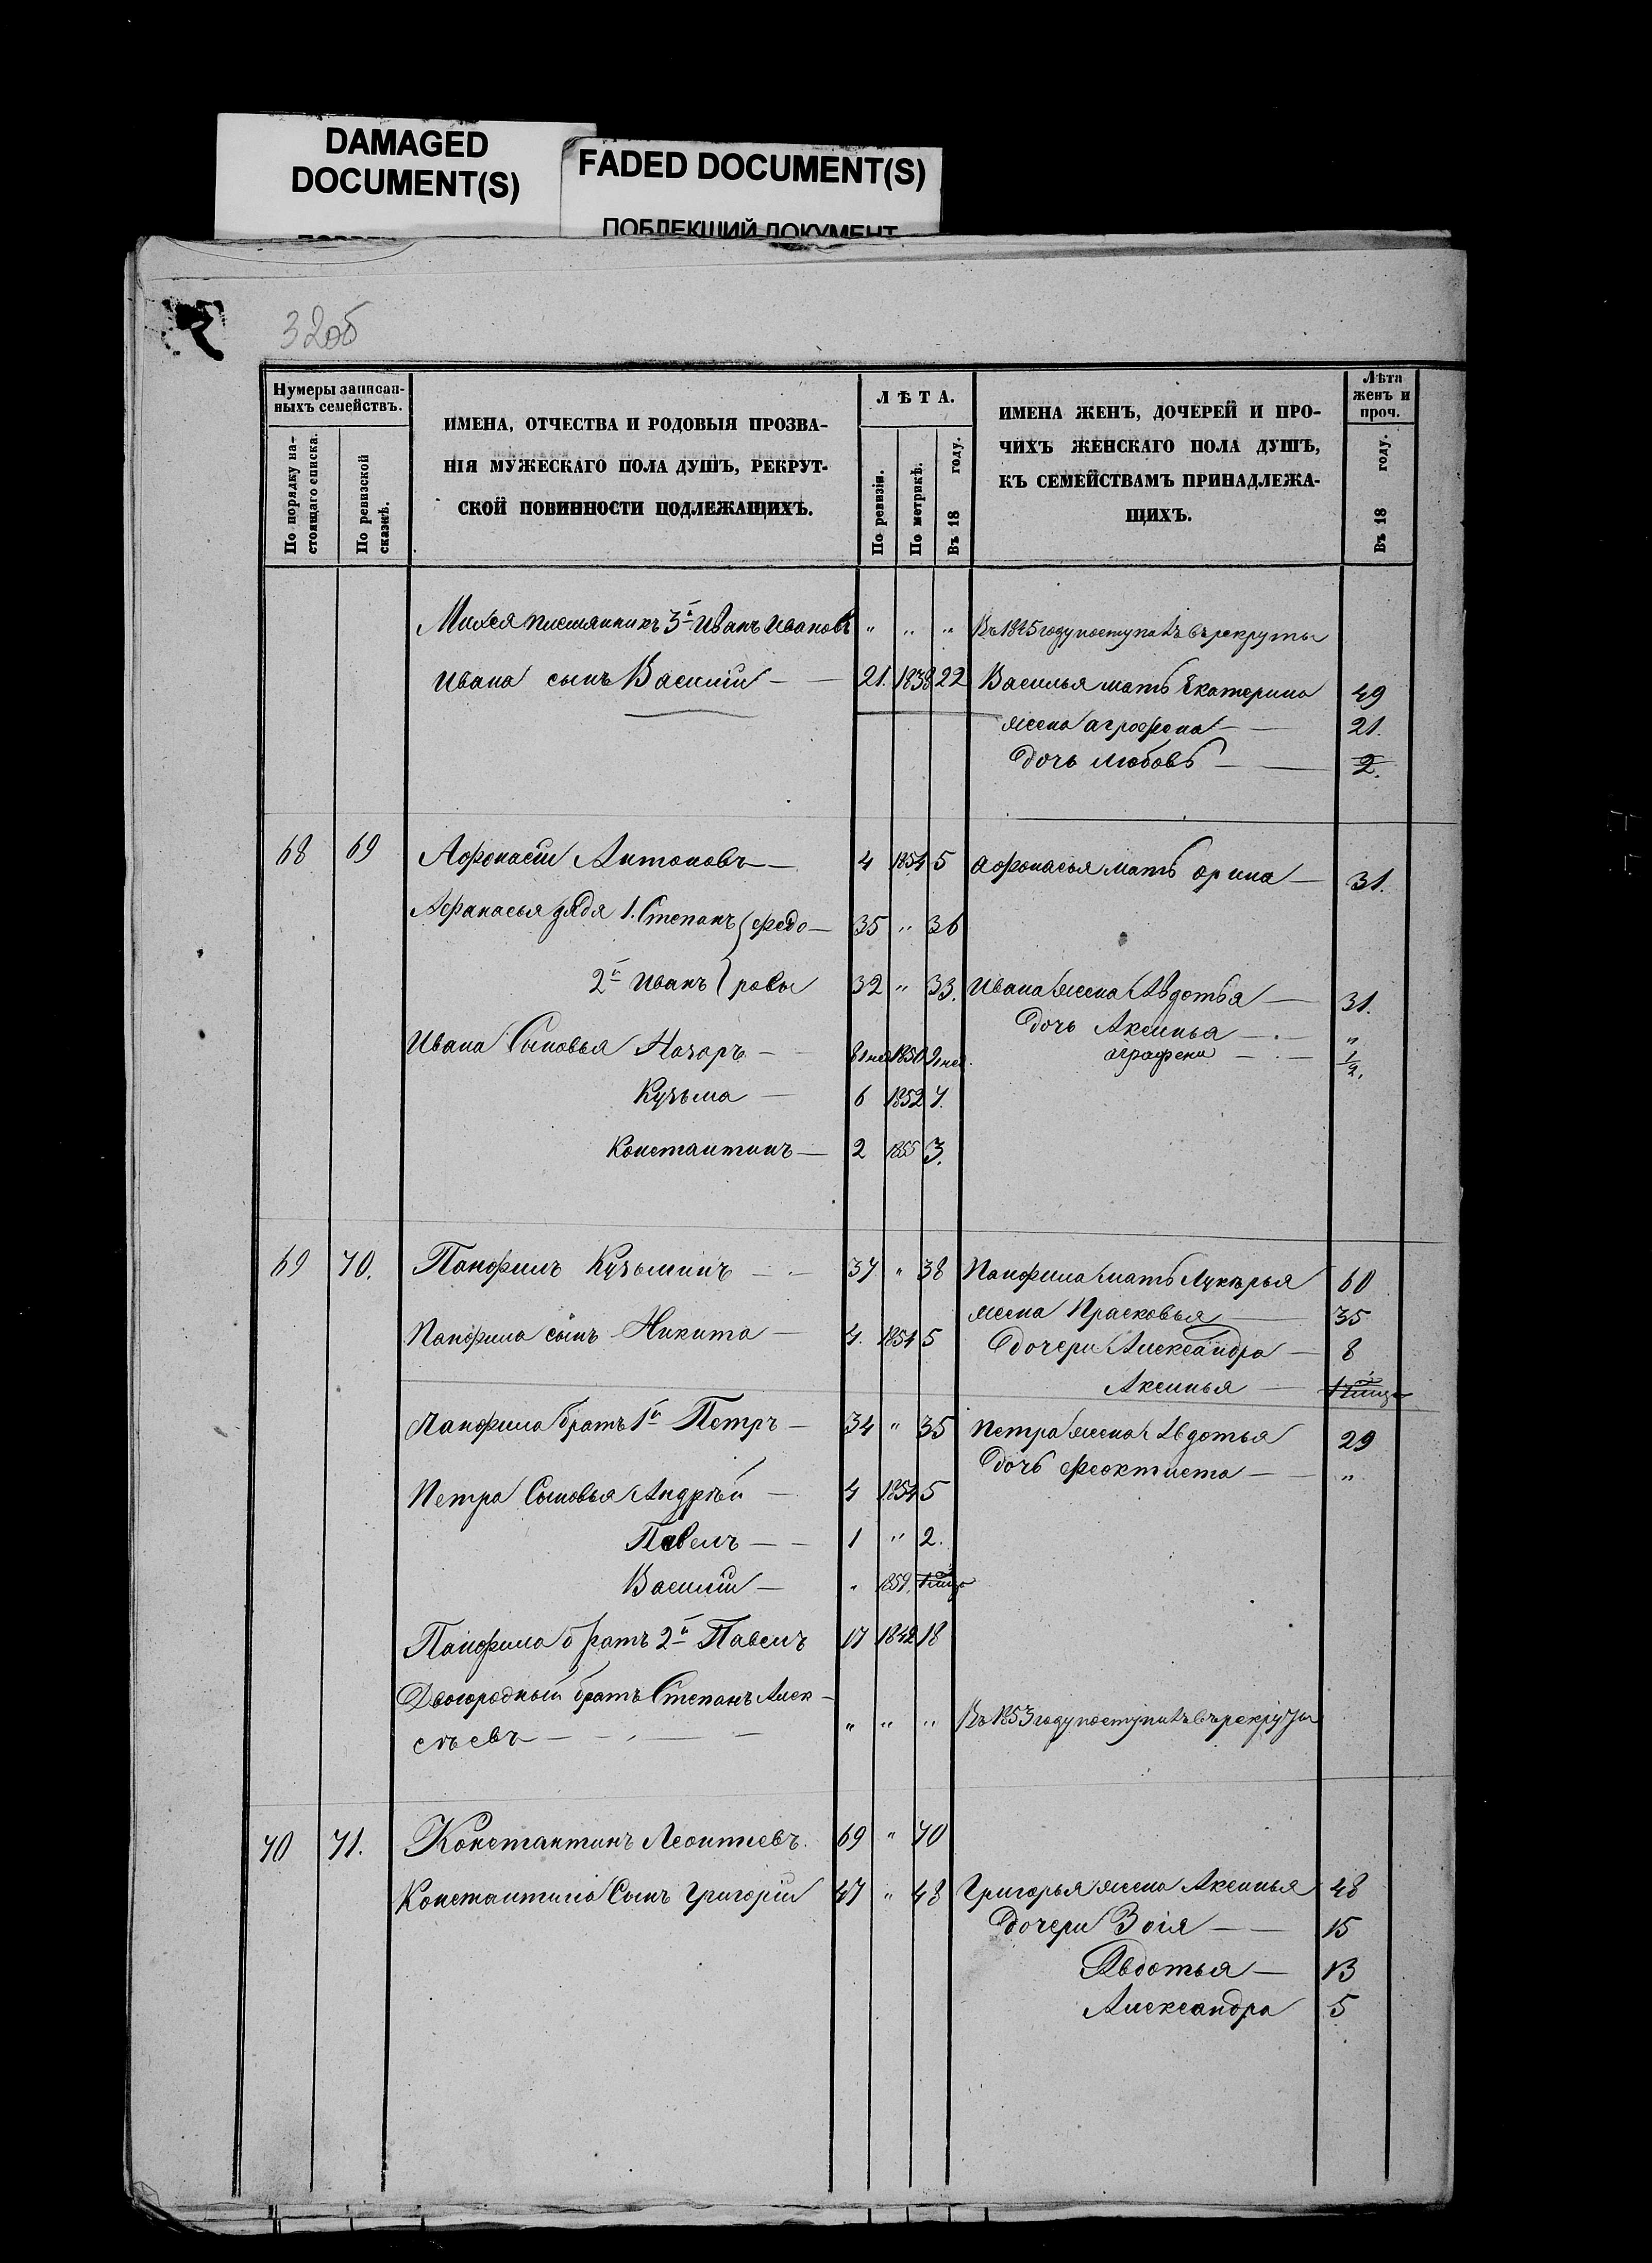 DAMAGED
DOCUMENT(S)
FADED DOCUMENT(S)
ПОБЛЕКШИЙ ДОКУМЕНТ
32об
Нумеры записан-
ныхъ семействъ.
По порядку на-
стоящаго списка.
По ревизской
сказкѣ.
ИМЕНА, ОТЧЕСТВА И РОДОВЫЯ ПРОЗВА-
НІЯ МУЖЕСКАГО ПОЛА ДУШЪ, РЕКРУТ-
СКОЙ ПОВИННОСТИ ПОДЛЕЖАЩИХЪ.
ЛѢТА.
По ревизіи.
По метрикѣ.
Въ 18 году.
ИМЕНА ЖЕНЪ, ДОЧЕРЕЙ И ПРО-
ЧИХЪ ЖЕНСКАГО ПОЛА ДУШЪ,
КЪ СЕМЕЙСТВАМЪ ПРИНАДЛЕЖА-
ЩИХЪ.
Лѣта
женъ и
проч.
Въ 18 году.
Михея племянникъ 3й Иванъ Ивановъ " " " Въ 1845 году поступилъ въ рекруты
Ивана сынъ Василій 21. 1838 22 Василья мать Екатерина 49
жена аграфена 21.
дочь любовь 2.
68 69 Афонасій Антоновъ 4 1854 5 афонасья мать орина 31.
Афанасья дядя 1. Степанъ } федо- 35 " 36
2й Иванъ } ровы 32 " 33. Ивана жена Авдотья 31.
дочь Аксинья "
Ивана Сыновья Назаръ 1850 аграфена 1/2.
Кузьма 6 1852 7.
Константинъ 2 1855 3.
69 70. Панфилъ Кузьминъ 37 " 38 Панфила мать Лукерья 60
жена Прасковья 35
Панфила сынъ Никита 4. 1854 5 дочери Александра 8
Аксинья
Панфила братъ 1й Петръ 34 " 35 Петра жена Авдотья 29
дочь феоктиста "
Петра Сыновья Андрѣй 4 1854 5
Павелъ 1 " 2.
Василій " 1859
Панфила братъ 2й Павелъ 17 1842 18
Двоюродный братъ Степанъ Алек-
сѣевъ " " " Въ 1853 году поступилъ въ рекруты
70 71. Константинъ Леонтьевъ. 69 " 70
Константина Сынъ Григорій 47 " 48 Григорья жена Аксинья 48
дочери Зоія 15
Авдотья 13
Александра 5